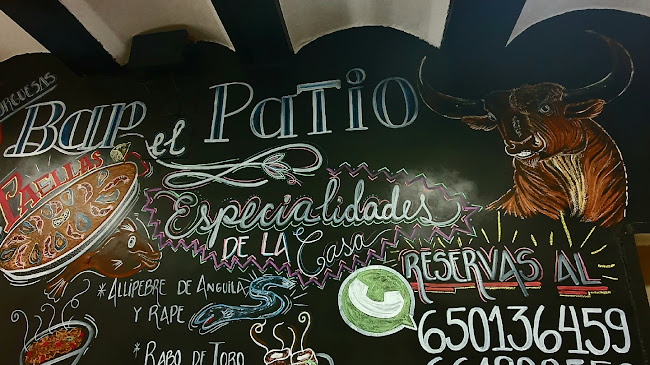 Bar el Patio
PAELLAS
Especialidades
DE LA Casa
* ALLIPEBRE DE ANGUILA
Y RAPE
* RABO DE TORO
RESERVAS AL
650136459